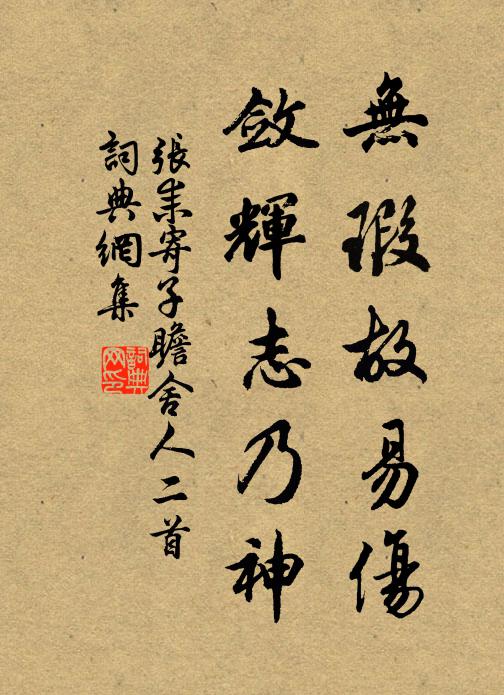 無瑕故易傷
斂輝志乃神
張耒寄子瞻舍人二首
詞典網集
詞典
网印